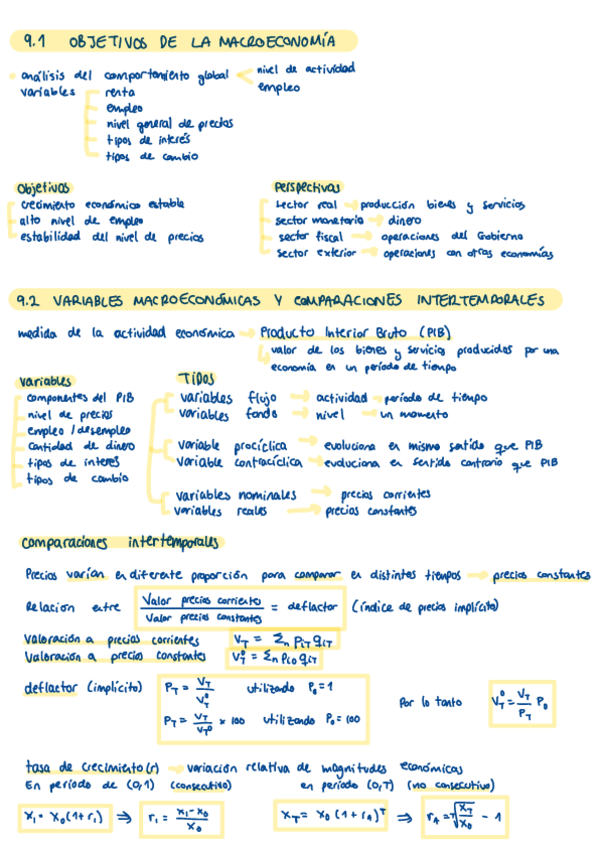 9.1 OBJETIVOS DE LA MACROECONOMÍA
análisis del comportamiento global < nivel de actividad
empleo
variables
renta
empleo
nivel general de precios
tipos de interés
tipos de cambio
Objetivos
crecimiento económico estable
alto nivel de empleo
estabilidad del nivel de precios
Perspectivas
sector real → producción bienes y servicios
sector monetario → dinero
sector fiscal → operaciones del Gobierno
sector exterior → operaciones con otras economías
9.2 VARIABLES MACROECONÓMICAS Y COMPARACIONES INTERTEMPORALES
medida de la actividad económica → Producto Interior Bruto (PIB)
valor de los bienes y servicios producidos por una
economía en un período de tiempo
Variables
componentes del PIB
nivel de precios
empleo / desempleo
cantidad de dinero
tipos de interés
tipos de cambio
Tipos
variables flujo → actividad → período de tiempo
variables fondo → nivel → un momento
variable procíclica → evoluciona en mismo sentido que PIB
variable contracíclica → evoluciona en sentido contrario que PIB
variables nominales → precios corrientes
variables reales → precios constantes
comparaciones intertemporales
Precios varían en diferente proporción para comparar en distintos tiempos → precios constantes
Relación entre Valor precios corrientes / Valor precios constantes = deflactor (índice de precios implícito)
Valoración a precios corrientes V_T = Σn p_iT q_iT
Valoración a precios constantes V_T^0 = Σn p_i0 q_iT
deflactor (implícito) P_T = V_T / V_T^0 utilizando P_0 = 1
P_T = V_T / V_T^0 × 100 utilizando P_0 = 100
Por lo tanto V_T^0 = V_T / P_T P_0
tasa de crecimiento (r) → variación relativa de magnitudes económicas
En período de (0,1) (consecutivo) en período (0,T) (no consecutivo)
X_1 = X_0 (1 + r_1) ⇒ r_1 = X_1 - X_0 / X_0
X_T = X_0 (1 + r_A)^T ⇒ r_A = T√(X_T / X_0) - 1